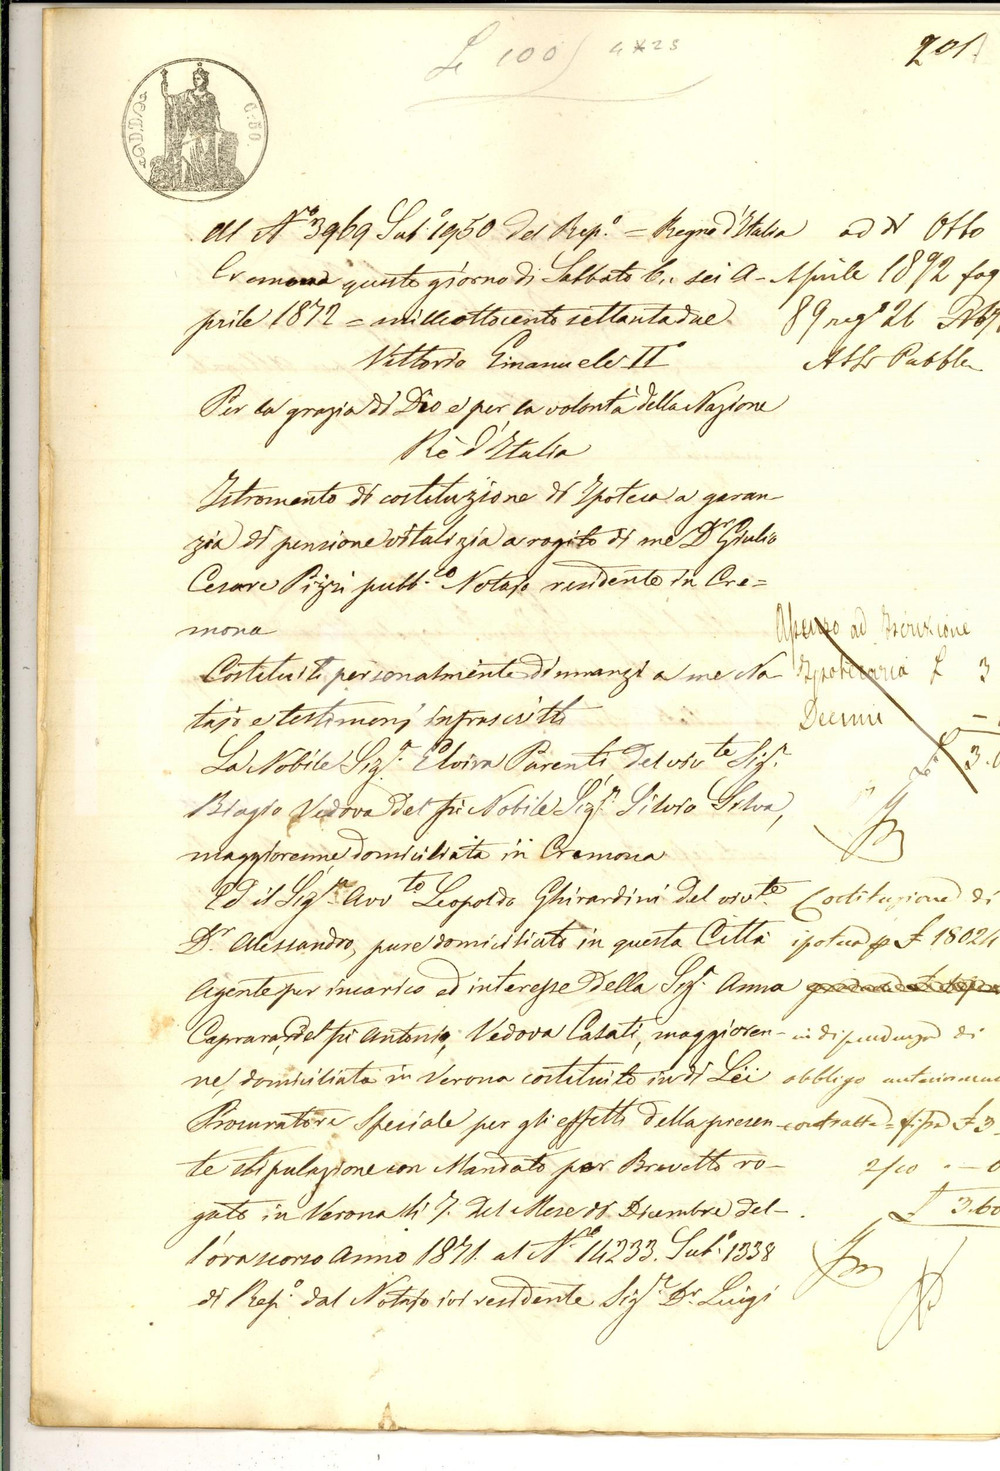 £ 100 4x23
201
C:50
Al N.º 3969 Sub.º 1950 del Rep.º = Regno d'Italia
Cremona questo giorno di Sabbato 6. sei A-
prile 1872 = milleottocento settantadue
Vittorio Emanuele II.º
Per la grazia di Dio e per la volontà della Nazione
Rè d'Italia
Istromento di costituzione di Ipoteca a garan-
zia di pensione vitalizia a rogito di me D.r Giulio
Cesare Pizzi pubb.co Notajo residente in Cre=
mona
Costituiti personalmente dinnanzi a me No-
tajo e testimonj infrascritti
La Nobile Sig.r Elvira Parenti del viv.te Sig.r
Biagio Vedova del fù Nobile Sig.r Silvio Silva,
maggiorenne, domiciliata in Cremona
Ed il Sig.r Avv.to Leopoldo Ghirardini del viv.te
D.r Alessandro, pure domiciliato in questa Città
Agente per incarico ed interesse della Sig.r Anna
Caprara, del fù Antonio, Vedova Casati, maggioren-
ne, domiciliata in Verona costituito in di Lei
Procuratore Speciale per gli effetti della presen-
te stipulazione con Mandato per Brevetto ro-
gato in Verona lli 7. del Mese di Dicembre del-
l'ora scorso Anno 1871. al N.º 14233. Sub.º 1338
di Rep.º dal Notajo ivi residente Sig.r D.r Luigi
ad dì Otto
Aprile 1892 fog
89 reg.º 26
Atti Pubbl
ad Iscrizione
Ipotecaria £ 3
Decimi
3.
Costituzione di
ipoteca p £ 18024
in dipendenza di
obbligo
contratto = fissa £ 3
2/10 . — 0
£ 3.60